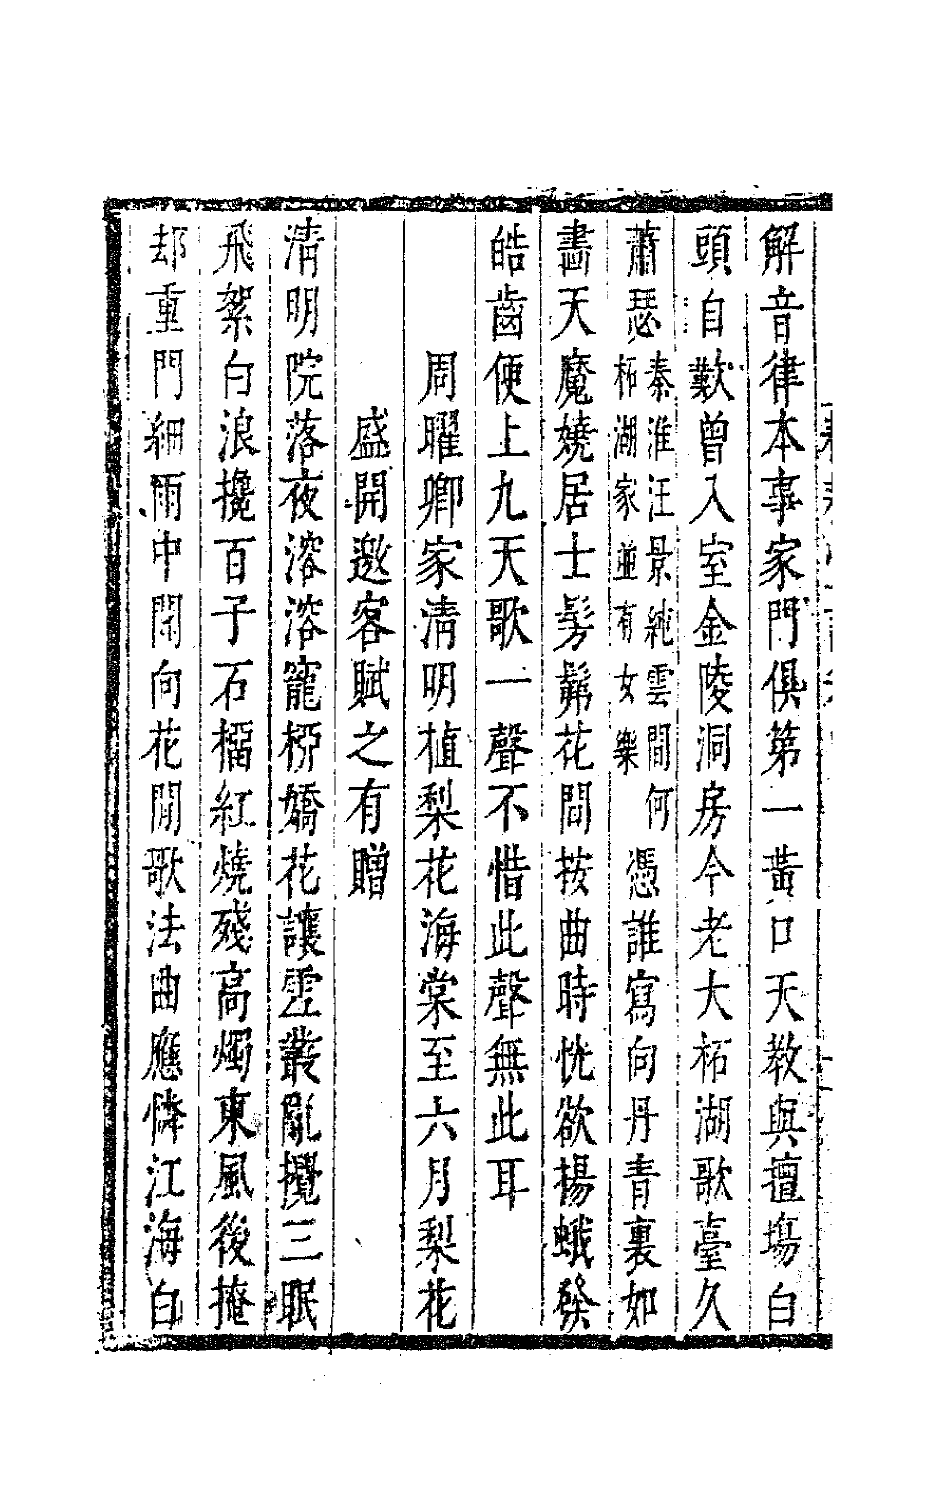 解音律本事家門俱第一黃口天教與擅塲白
頭自歎曾入室金陵洞房今老大柘湖歌臺久
蕭瑟秦淮汪景純雲間何柘湖家並有女樂憑誰寫向丹青裏如
畵天魔嬈居士髣髴花間按曲時恍欲揚蛾發
皓齒便上九天歌一聲不惜此聲無此耳
周曜卿家清明植梨花海棠至六月梨花
盛開邀客賦之有贈
清明院落夜溶溶寵柳嬌花讓叢亂攪三眠
飛絮白浪攙百子石榴紅燒殘高燭東風後掩
却重門細雨中閒向花間歌法曲應憐江海白